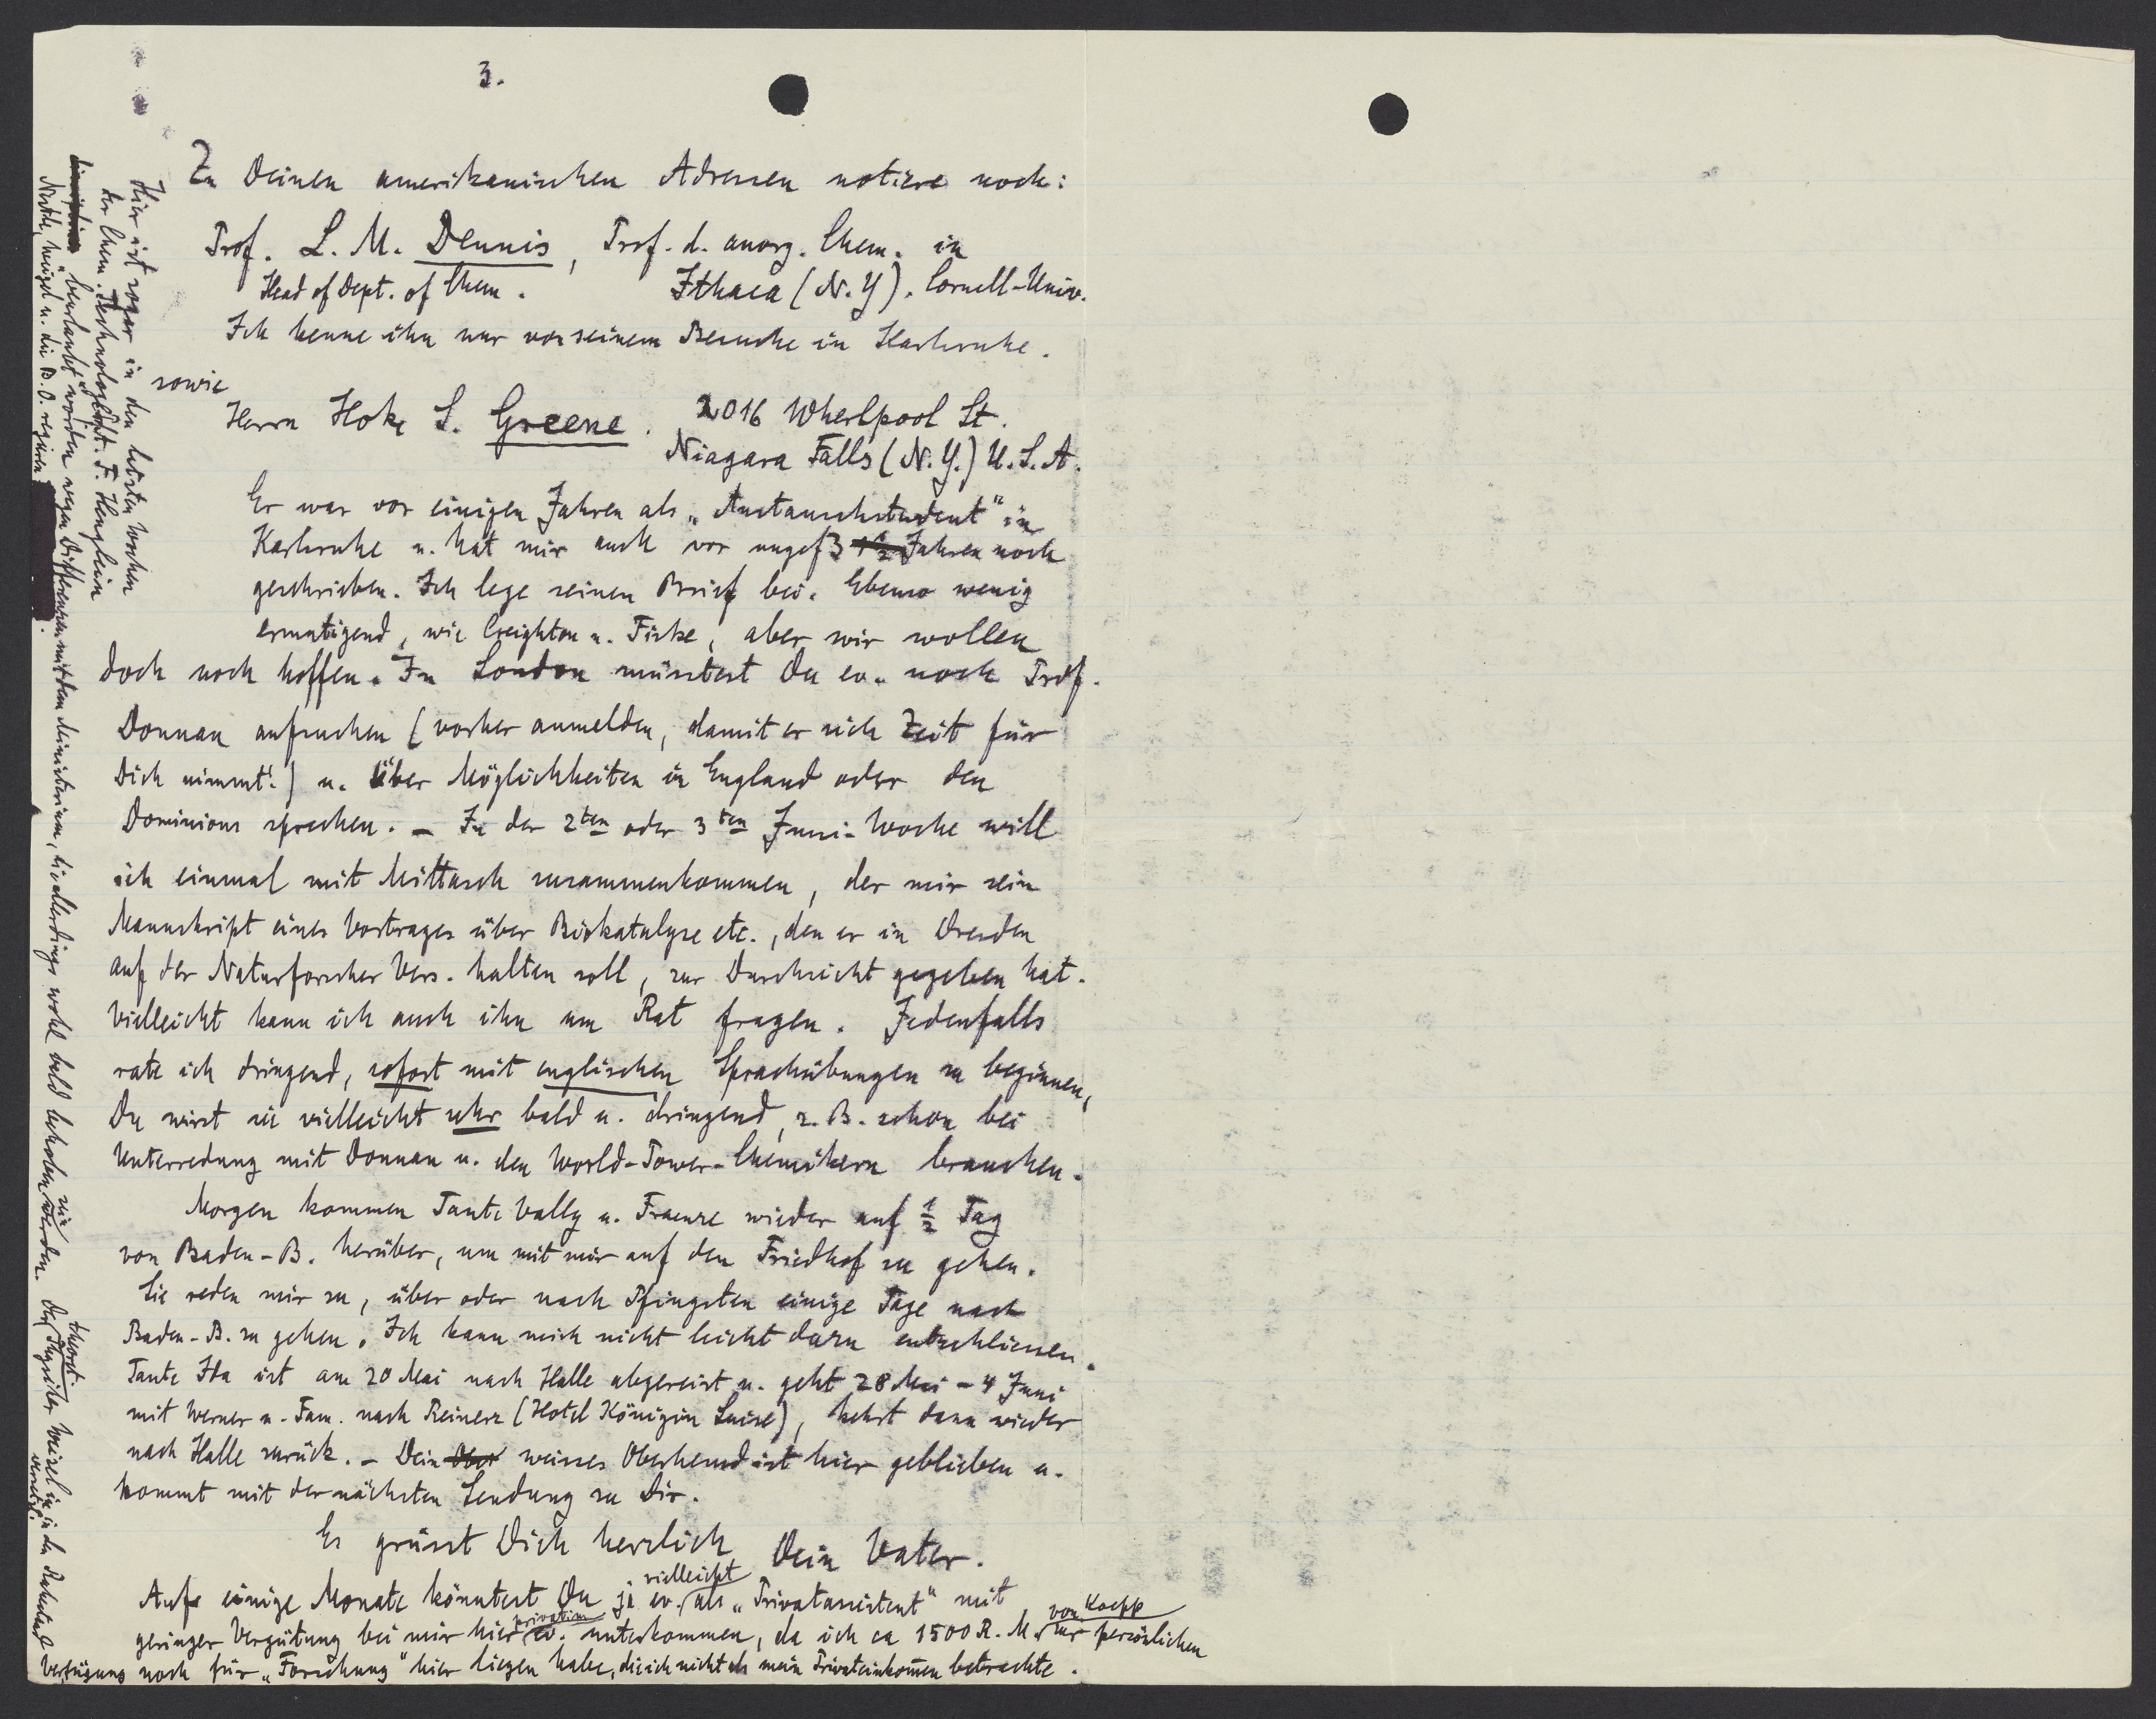 3.
Zu Deinen amerikanischen Adressen notiere noch:
Prof. L. M. Dennis, Prof. d. anorg. Chem. in
Head of Dept. of Chem. Ithaca (N.Y). Cornell-Univ.
Ich kenne ihn nur von seinem Besuche in Karlsruhe.
sowie
Herrn Hoke S. Greene. 2016 Wherlpool St.
Niagara Falls (N.Y.) U.S.A.
Er war vor einigen Jahren als „Austauschstudent" in
Karlsruhe u. hat mir auch vor ungef 3 1½ Jahren noch
geschrieben. Ich lege seinen Brief bei. Ebenso wenig
ermutigend, wie Creighton u. Fiske, aber wir wollen
doch noch hoffen. In London müsstest Du ev. noch Prof.
Donnan aufsuchen (vorher anmelden, damit er sich Zeit für
Dich nimmt!) u. über Möglichkeiten in England oder den
Dominions sprechen. – In der 2ten oder 3ten Juni-Woche will
ich einmal mit Mittasch zusammenkommen, der mir sein
Manuskript eines Vortrages über Biokatalyse etc., den er in Dresden
auf der Naturforscher Vers. halten soll, zur Durchsicht gegeben hat.
Vielleicht kann ich auch ihn um Rat fragen. Jedenfalls
rate ich dringend, sofort mit englischen Sprachübungen zu beginnen,
Du wirst sie vielleicht sehr bald u. dringend, z. B. schon bei
Unterredung mit Donnan u. den World-Power-Chemikern brauchen.
Morgen kommen Tante Vally u. Fraenze wieder auf ½ Tag
von Baden-B. herüber, um mit mir auf den Friedhof zu gehen.
Sie reden mir zu, über oder nach Pfingsten einige Tage nach
Baden-B. zu gehen. Ich kann mich nicht leicht dazu entschliessen.
Tante Ida ist am 20 Mai nach Halle abgereist u. geht 28 Mai – 4 Juni
mit Werner u. Fam. nach Reinerz (Hotel Königin Luise), kehrt dann wieder
nach Halle zurück. – Dein Ober weisses Oberhemd ist hier geblieben u.
kommt mit der nächsten Sendung zu Dir.
Es grüsst Dich herzlich Dein Vater.
Auf einige Monate könntest Du ja ev. vielleicht als „Privatassistent" mit
geringer Vergütung bei mir hier privatim ev. unterkommen, da ich ca 1500 R. M. von Koepp zur persönlichen
Verfügung noch für „Forschung" hier liegen habe, die ich nicht als mein Privateinkommen betrachte.
Hier ist sogar in den letzten Wochen
der Chem. Technologe F. Henglein
„beurlaubt" worden wegen Differenzen mit dem Ministerium, die allerdings wohl bald behoben sein werden. Der theoret. Physiker Weizel ist in den Ruhestand
versetzt.